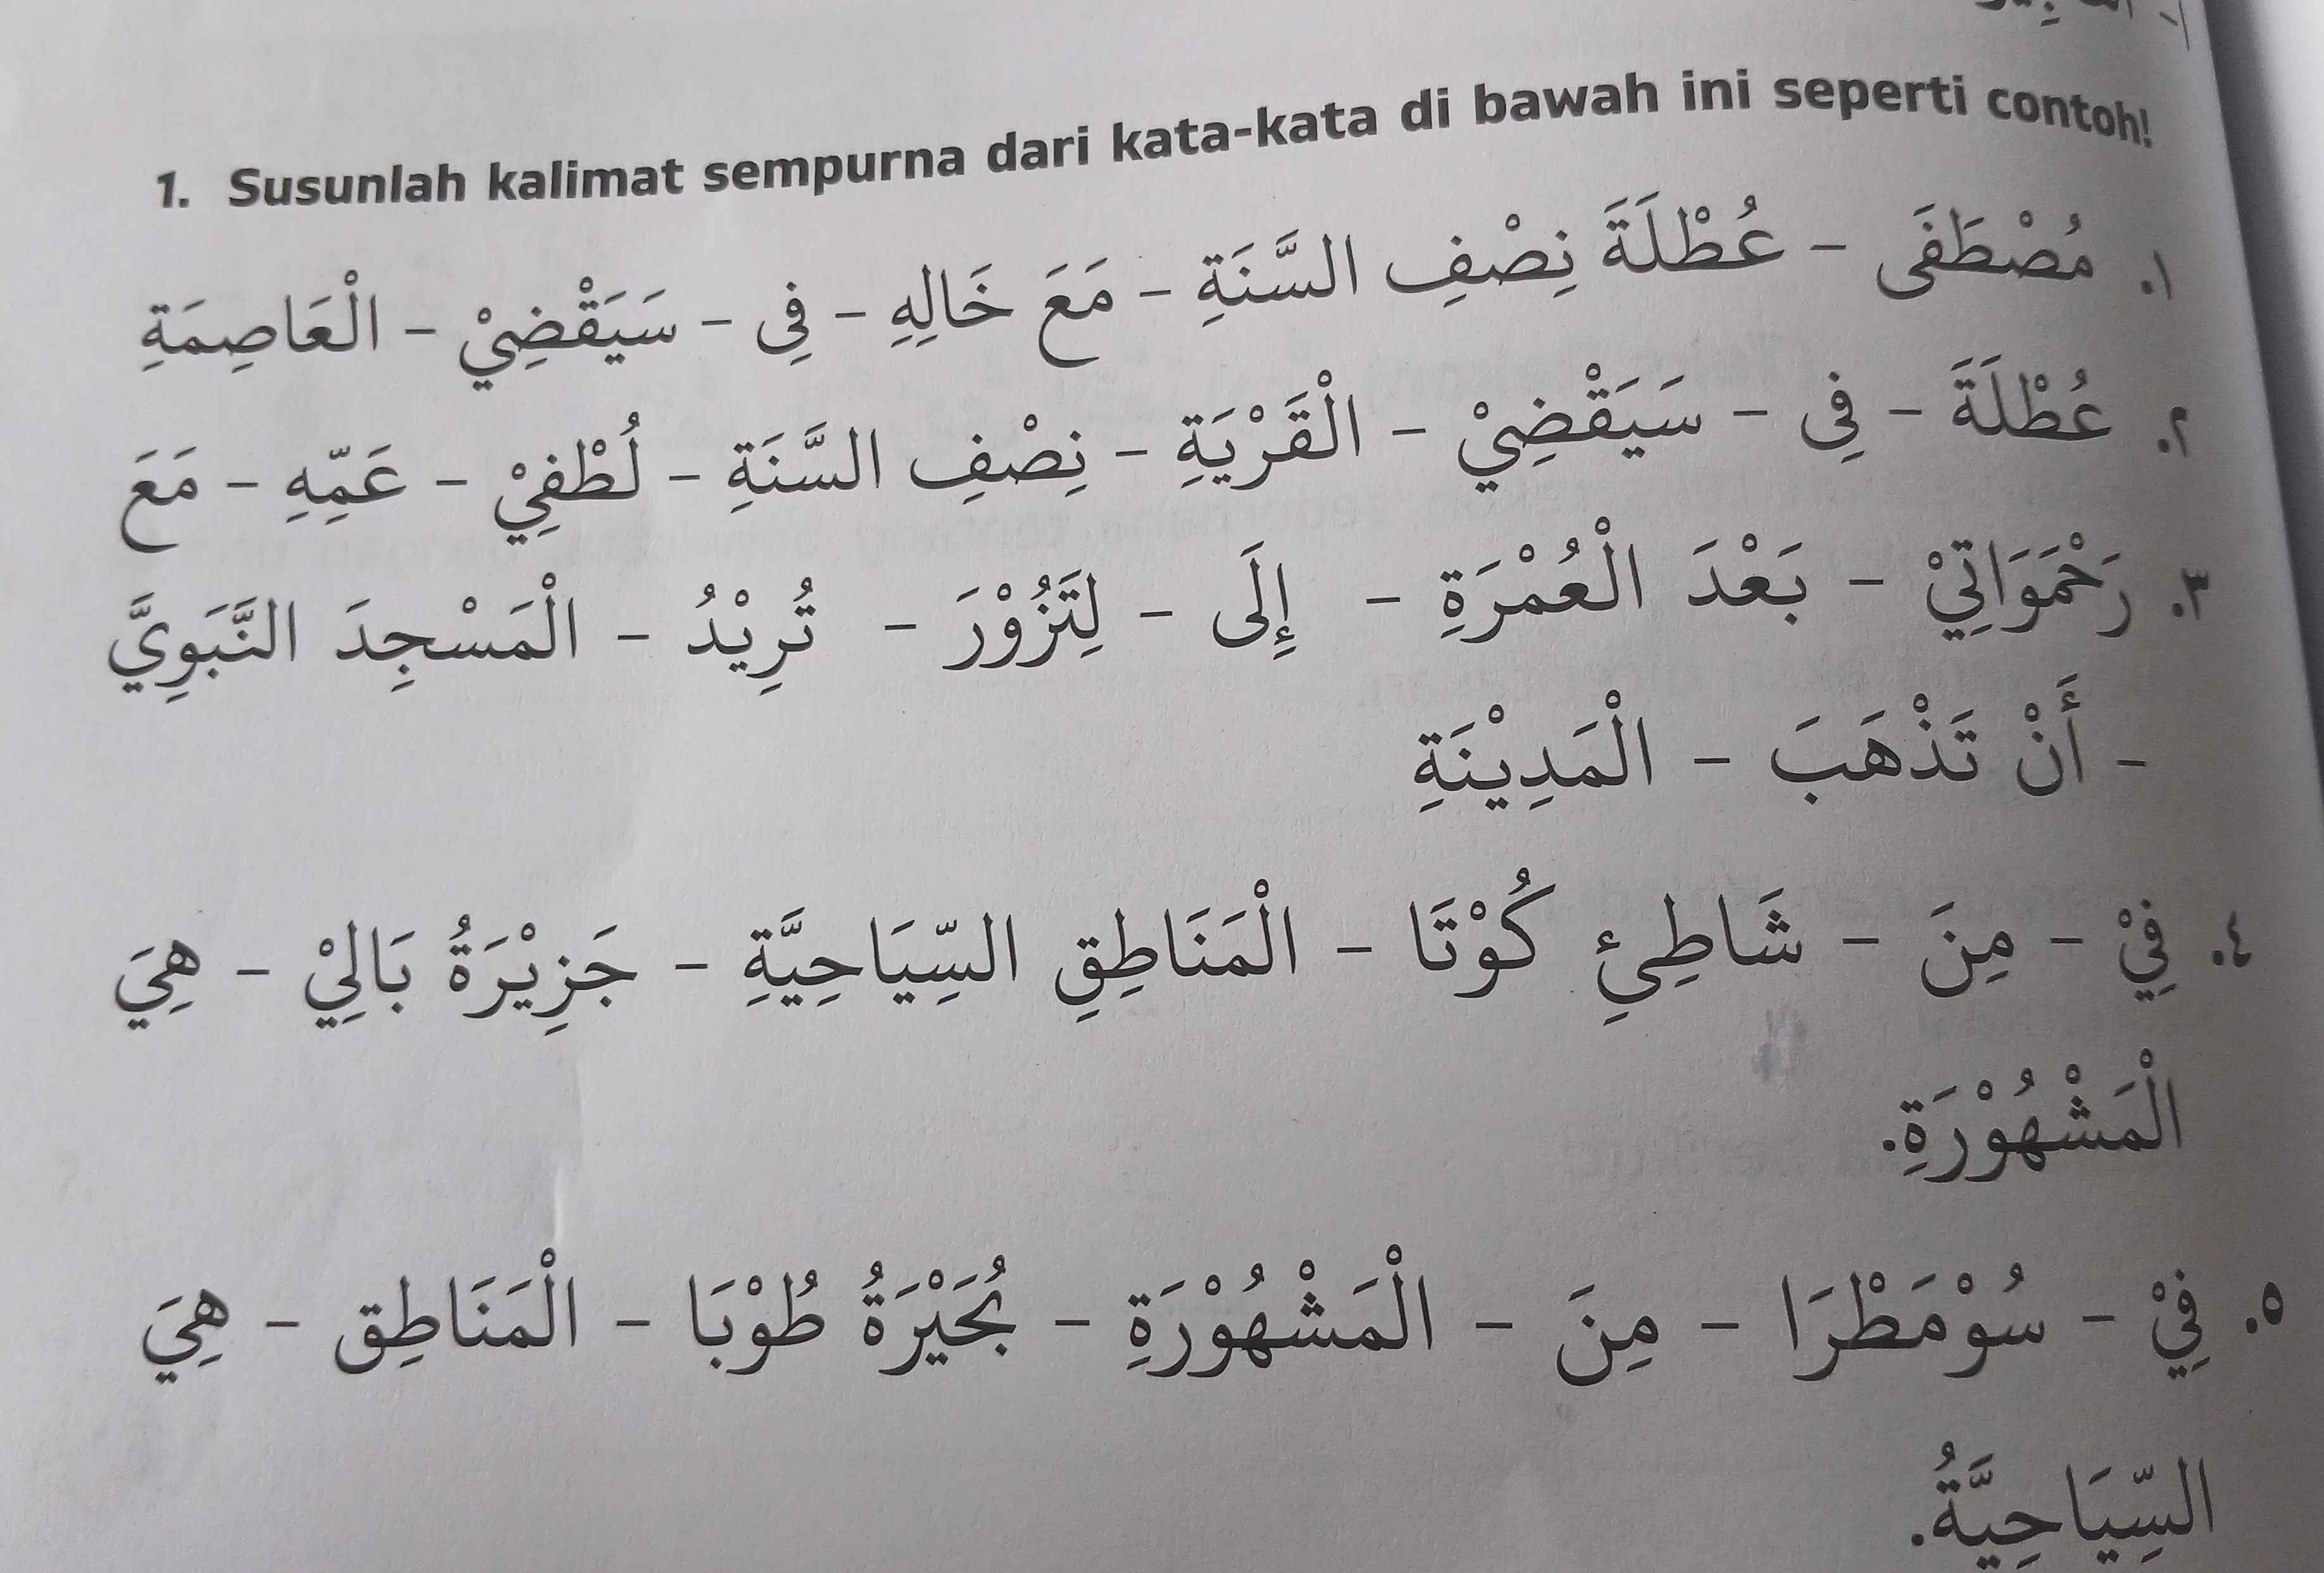 1. Susunlah kalimat sempurna dari kata-kata di bawah ini seperti contoh!
١. مُصْطَفَى – عُطْلَةَ نِصْفِ السَّنَةِ – مَعَ خَالِهِ – فِى – سَيَقْضِيْ – الْعَاصِمَةِ
٢. عُطْلَةَ – فِى – سَيَقْضِيْ – الْقَرْيَةِ – نِصْفِ السَّنَةِ – لُطْفِيْ – عَمِّهِ – مَعَ
٣. رَحْمَوَاتِيْ – بَعْدَ الْعُمْرَةِ – إِلَى – لِتَزُوْرَ – تُرِيْدُ – الْمَسْجِدَ النَّبَوِيَّ
– أَنْ تَذْهَبَ – الْمَدِيْنَةِ
٤. فِيْ – مِنَ – شَاطِئِ كُوْتَا – الْمَنَاطِقِ السِّيَاحِيَّةِ – جَزِيْرَةُ بَالِيْ – هِيَ
الْمَشْهُوْرَةِ.
٥. فِيْ – سُوْمَطْرَا – مِنَ – الْمَشْهُوْرَةِ – بُحَيْرَةُ طُوْبَا – الْمَنَاطِق – هِيَ
السِّيَاحِيَّةُ.